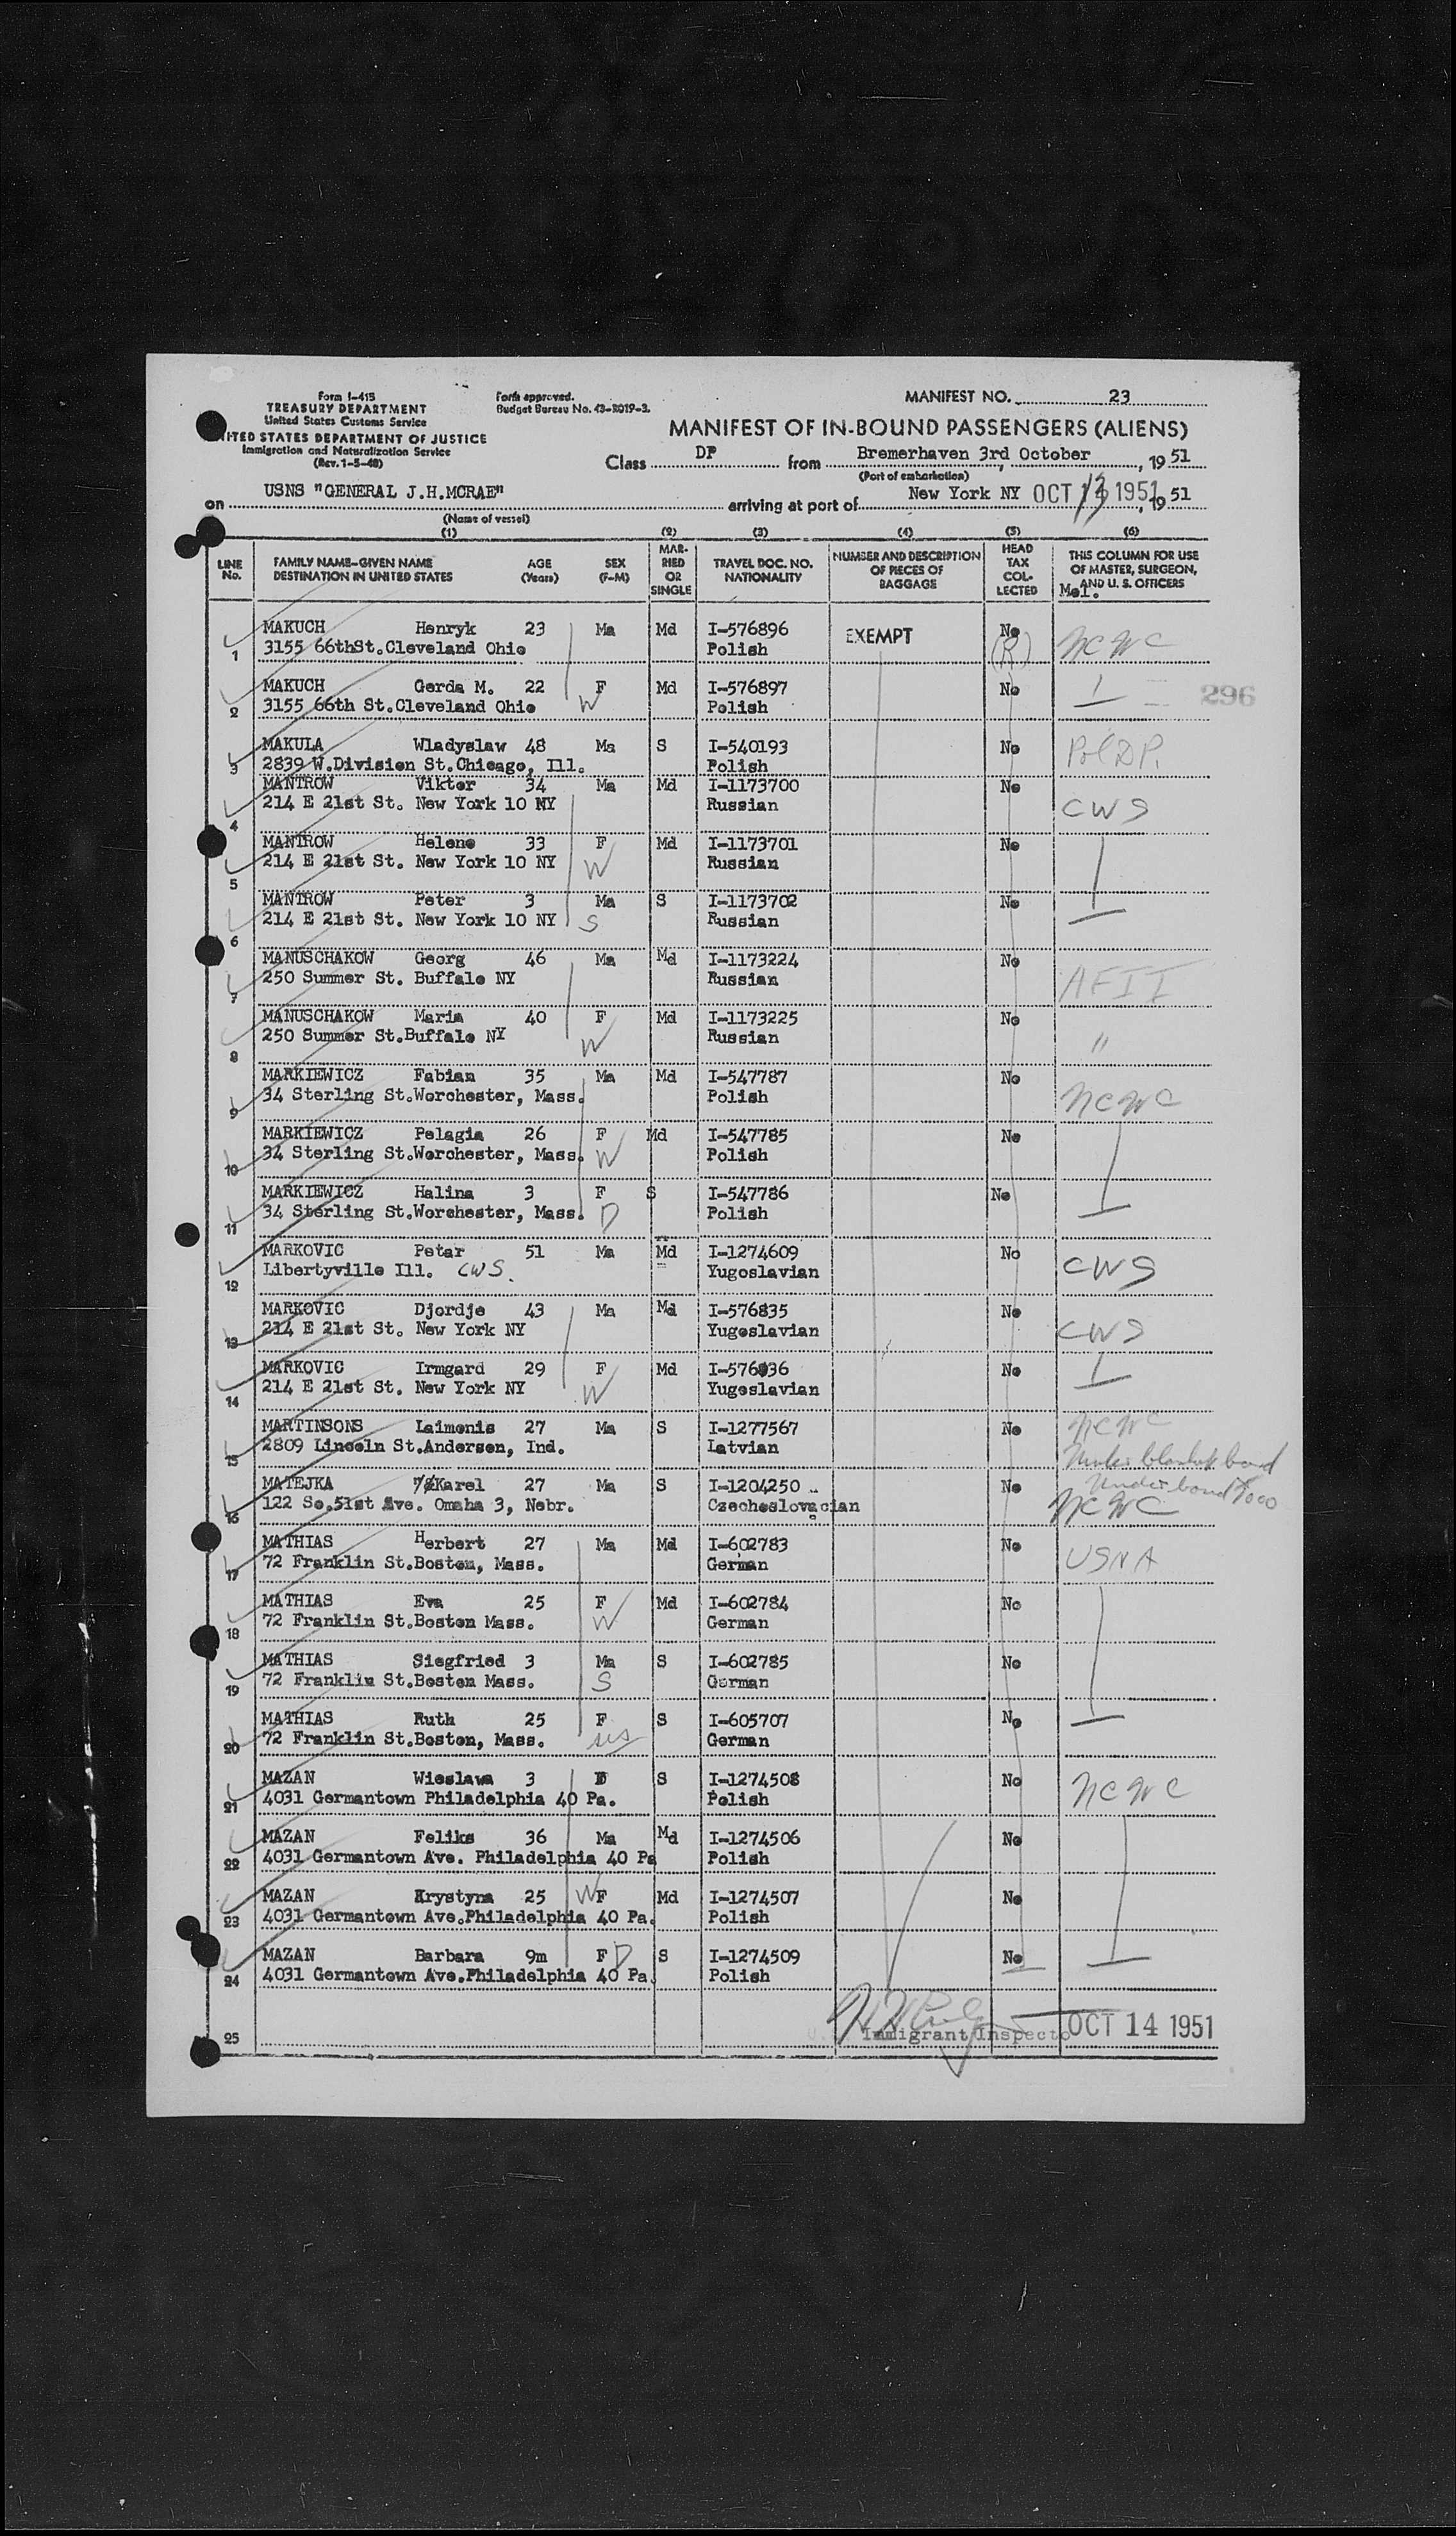 Form I-415
TREASURY DEPARTMENT
United States Customs Service
UNITED STATES DEPARTMENT OF JUSTICE
Immigration and Naturalization Service
(Rev. 1-5-48)
Form approved.
Budget Bureau No. 43-R019-3.
MANIFEST NO. 23
MANIFEST OF IN-BOUND PASSENGERS (ALIENS)
Class DP from Bremerhaven 3rd October, 19 51
(Port of embarkation)
on USNS "GENERAL J.H.MCRAE" arriving at port of New York NY OCT 13 1951, 19 51
(Name of vessel)
(1) (2) (3) (4) (5) (6)
LINE No. FAMILY NAME-GIVEN NAME DESTINATION IN UNITED STATES AGE (Years) SEX (F-M) MARRIED OR SINGLE TRAVEL DOC. NO. NATIONALITY NUMBER AND DESCRIPTION OF PIECES OF BAGGAGE HEAD TAX COLLECTED THIS COLUMN FOR USE OF MASTER, SURGEON, AND U. S. OFFICERS
1 MAKUCH Henryk 23 Ma Md I-576896 EXEMPT No (R) NCWC
3155 66thSt.Cleveland Ohio Polish
2 MAKUCH Gerda M. 22 F W Md I-576897 No
3155 66th St.Cleveland Ohio Polish
296
3 MAKULA Wladyslaw 48 Ma S I-540193 No Pol DP.
2839 W.Division St.Chicago, Ill. Polish
4 MANTROW Viktor 34 Ma Md I-1173700 No CWS
214 E 21st St. New York 10 NY Russian
5 MANTROW Helene 33 F W Md I-1173701 No
214 E 21st St. New York 10 NY Russian
6 MANTROW Peter 3 Ma S S I-1173702 No
214 E 21st St. New York 10 NY Russian
7 MANUSCHAKOW Georg 46 Ma Md I-1173224 No AFII
250 Summer St. Buffalo NY Russian
8 MANUSCHAKOW Maria 40 F W Md I-1173225 No "
250 Summer St.Buffalo NY Russian
9 MARKIEWICZ Fabian 35 Ma Md I-547787 No NCWC
34 Sterling St.Worchester, Mass. Polish
10 MARKIEWICZ Pelagia 26 F W Md I-547785 No
34 Sterling St.Worchester, Mass. Polish
11 MARKIEWICZ Halina 3 F D S I-547786 No
34 Sterling St.Worchester, Mass. Polish
12 MARKOVIC Petar 51 Ma Md I-1274609 No CWS
Libertyville Ill. CWS. Yugoslavian
13 MARKOVIC Djordje 43 Ma Md I-576835 No CWS
214 E 21st St. New York NY Yugoslavian
14 MARKOVIC Irmgard 29 F W Md I-576836 No
214 E 21st St. New York NY Yugoslavian
15 MARTINSONS Laimonis 27 Ma S I-1277567 No NCWC
2809 Lincoln St.Anderson, Ind. Latvian
Under blanket bond
16 MATEJKA Karel 27 Ma S I-1204250 No Under bond
122 So.51st Ave. Omaha 3, Nebr. Czechoslovacian NCWC
17 MATHIAS Herbert 27 Ma Md I-602783 No USNA
72 Franklin St.Boston, Mass. German
18 MATHIAS Eva 25 F W Md I-602784 No
72 Franklin St.Boston Mass. German
19 MATHIAS Siegfried 3 Ma S S I-602785 No
72 Franklin St.Boston Mass. German
20 MATHIAS Ruth 25 F sis S I-605707 No
72 Franklin St.Boston, Mass. German
21 MAZAN Wieslawa 3 S I-1274508 No NCWC
4031 Germantown Philadelphia 40 Pa. Polish
22 MAZAN Feliks 36 Ma Md I-1274506 No
4031 Germantown Ave. Philadelphia 40 Pa Polish
23 MAZAN Krystyna 25 W F Md I-1274507 No
4031 Germantown Ave.Philadelphia 40 Pa. Polish
24 MAZAN Barbara 9m F D S I-1274509 No
4031 Germantown Ave.Philadelphia 40 Pa. Polish
25 Immigrant Inspector OCT 14 1951